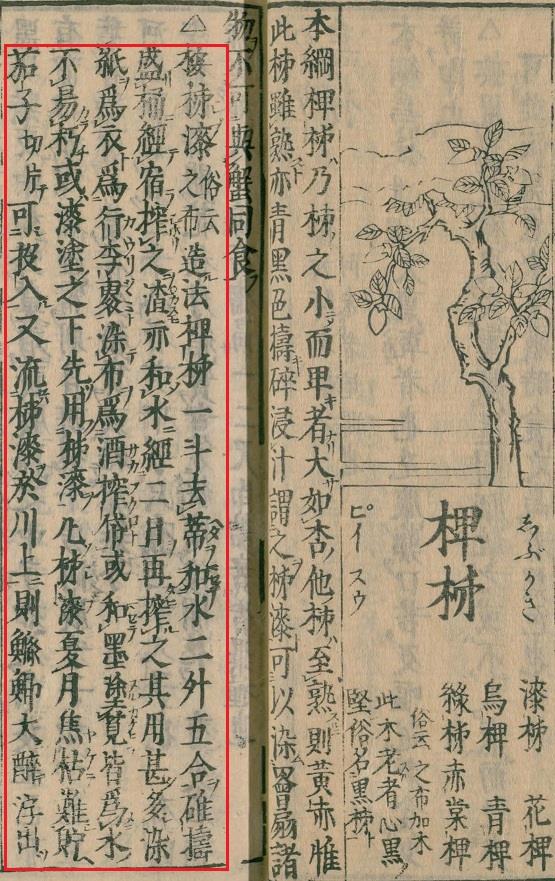 しぶかき
椑柹
ピイ スウ
漆柹 花椑
烏椑 青椑
綠柹 赤棠椑
俗云之布加木
此木老者心黒
堅俗名黒柹
本綱椑柹乃柹之小而卑者大如杏他柹至熟則黄赤惟
此柹雖熟亦青黒色擣碎浸汁謂之柹漆可以染罾扇諸
物不可與蟹同食
△按柹漆俗云之布造法椑柹一斗去蒂和水二升五合碓擣
盛桶經宿搾之渣亦和水經二日再搾之其用甚多染
紙爲衣爲行李裹染布爲酒搾帒或和墨塗甍皆爲水
不昜朽或漆塗之下先用柹漆凡柹漆夏月焦枯難貯
茄子切片可投入又流柹漆於川上則鱜大醉浮出